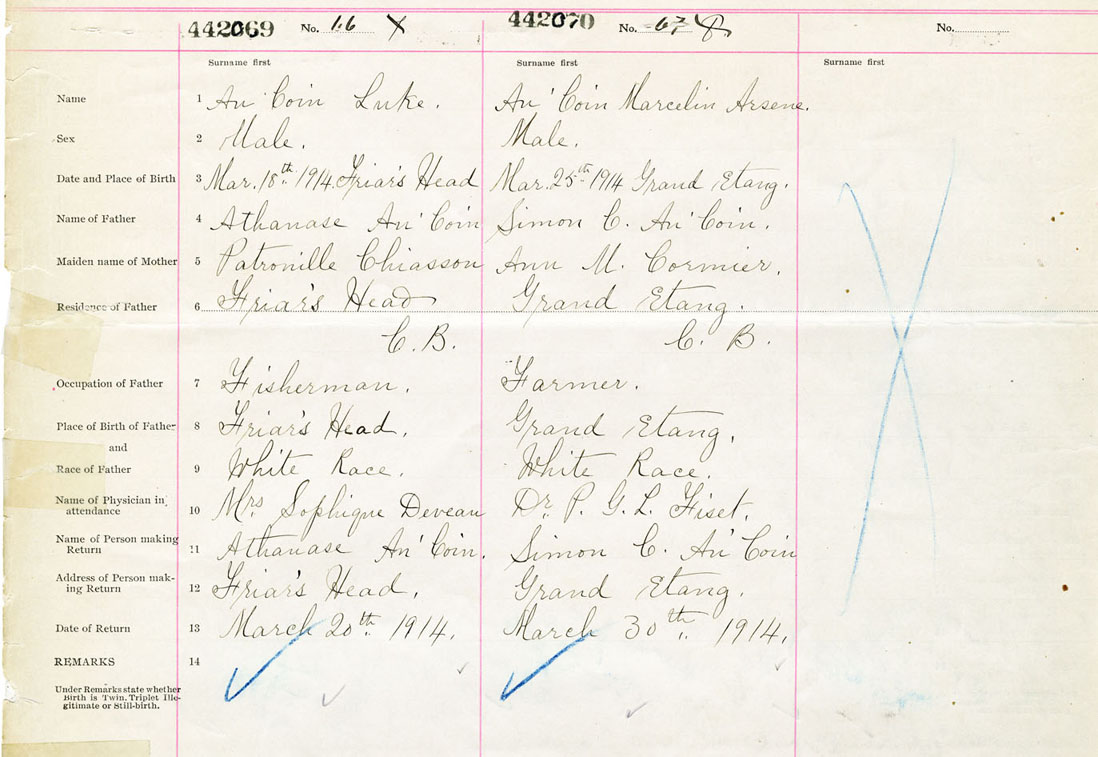 442069 No. 66 X 442070 No. 67 No.
Surname first Surname first Surname first
Name 1 An'Coin Luke. An'Coin Marcelin Arsene.
Sex 2 Male. Male.
Date and Place of Birth 3 Mar. 18th 1914. Friar's Head Mar. 25th 1914 Grand Etang.
Name of Father 4 Athanase An'Coin Simon C. An'Coin.
Maiden name of Mother 5 Patronille Chiasson Ann M. Cormier.
Residence of Father 6 Friar's Head Grand Etang.
C.B. C. B.
Occupation of Father 7 Fisherman. Farmer.
Place of Birth of Father 8 Friar's Head. Grand Etang.
and
Race of Father 9 White Race. White Race.
Name of Physician in
attendance 10 Mrs Sophique Deveau Dr. P. G. L. Fiset.
Name of Person making
Return 11 Athanase An'Coin. Simon C. An'Coin
Address of Person mak-
ing Return 12 Friar's Head. Grand Etang.
Date of Return 13 March 20th. 1914. March 30th. 1914.
REMARKS 14
Under Remarks state whether
Birth is Twin, Triplet Ille-
gitimate or Still-birth.